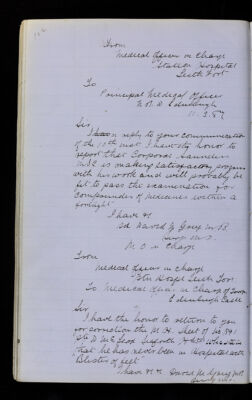 From
Medical Officer in Charge
Station Hospital
Leith Fort
To
Principal Medical Officer
N.B.D Edinburgh
11.3.87
Sir,
In reply to your communication
of the 10th inst. I have the honor to
report that Corporal Saunders
is making satisfactory progress
with his work and will probably be
fit to pass the examination for
compounder of medicines within a
fortnight
I have &c
sd David
M O in Charge
From
Medical Officer in Charge
Stn Hospl Leith Fort
To Medical Officer in Charge of Troops
Edinburgh Castle
Sir
I have the honor to return to you
for correction the M. H. Sheet of No 541
who states
that he has never been in Hospital with
Blisters of feet
I have &c David